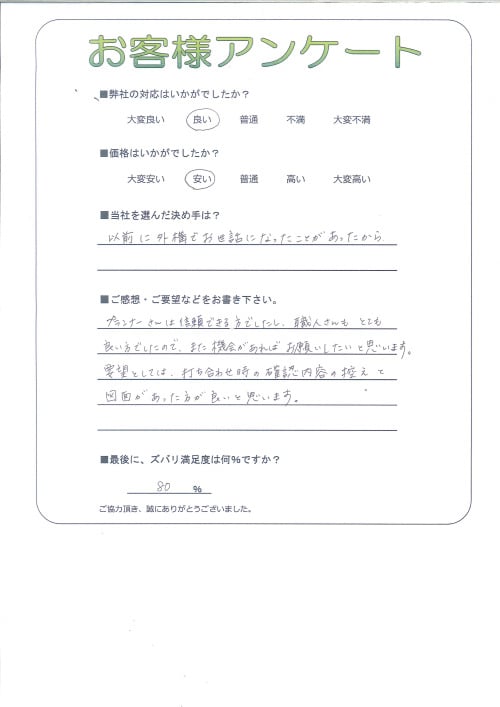 お客様アンケート
■弊社の対応はいかがでしたか？
大変良い 良い 普通 不満 大変不満
■価格はいかがでしたか？
大変安い 安い 普通 高い 大変高い
■当社を選んだ決め手は？
以前に外構でお世話になったことがあったから
■ご感想・ご要望などをお書き下さい。
プランナーさんは信頼できる方でしたし、職人さんもとても
良い方でしたので、また機会があればお願いしたいと思います。
要望としては、打ち合わせ時の確認内容の控えと
図面があった方が良いと思います。
■最後に、ズバリ満足度は何％ですか？
80 ％
ご協力頂き、誠にありがとうございました。